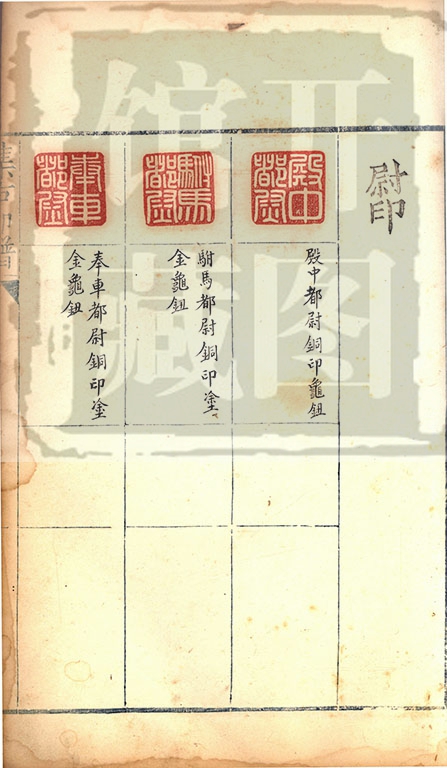 尉印
殿中都尉
殿中都尉銅印龜鈕
駙馬都尉
駙馬都尉銅印塗
金龜鈕
奉車都尉
奉車都尉銅印塗
金龜鈕
开图
馆藏